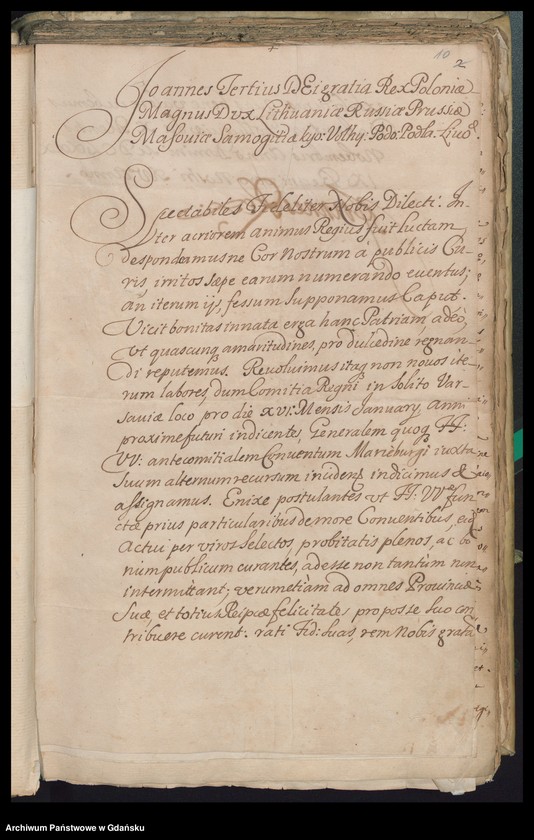 10
2
Joannes Tertius DEi gratia Rex Poloniæ
Magnus Dvx Lithuaniæ Russiæ Prussiæ
Masouiæ Samogitiæ kijo: Volhy: Podo: Podla: Liuo
Spectabiles Fideliter Nobis Dilecti. In-
ter acriorem animus Regius fuit luctam,
despondeamusne Cor Nostrum à publicis Cu-
ris, irritos sæpe earum numerando euentus;
an iterum ijs, fessum supponamus Caput.
Vicit bonitas innata erga hanc Patriam, adeò,
vt quascunq amaritudines, pro dulcedine regnan-
di reputemus. Reuoluimus itaq non nouos ite-
rum labores, dum Comitia Regni in solito Var-
sauiæ loco pro die XVI: Mensis January, anni
proxime futuri indicentes, Generalem quoq FF:
VV: antecomitialem Conuentum Marieburgi iuxta
suum alternum recursum incidens, indicimus &
assignamus. Enixe postulantes vt FF: VV fun-
ctæ prius particularibus de more Conuentibus, ei
Actui per viros selectos, probitatis plenos, ac bo
num publicum curantes, adesse non tantùm non
intermittant; verumetiàm ad omnes Prouinciæ
suæ, et totius Reipcæ felicitates pro posse suo con
tribuere curent. rati Fid: suas, rem Nobis gratā
Archiwum Państwowe w Gdańsku